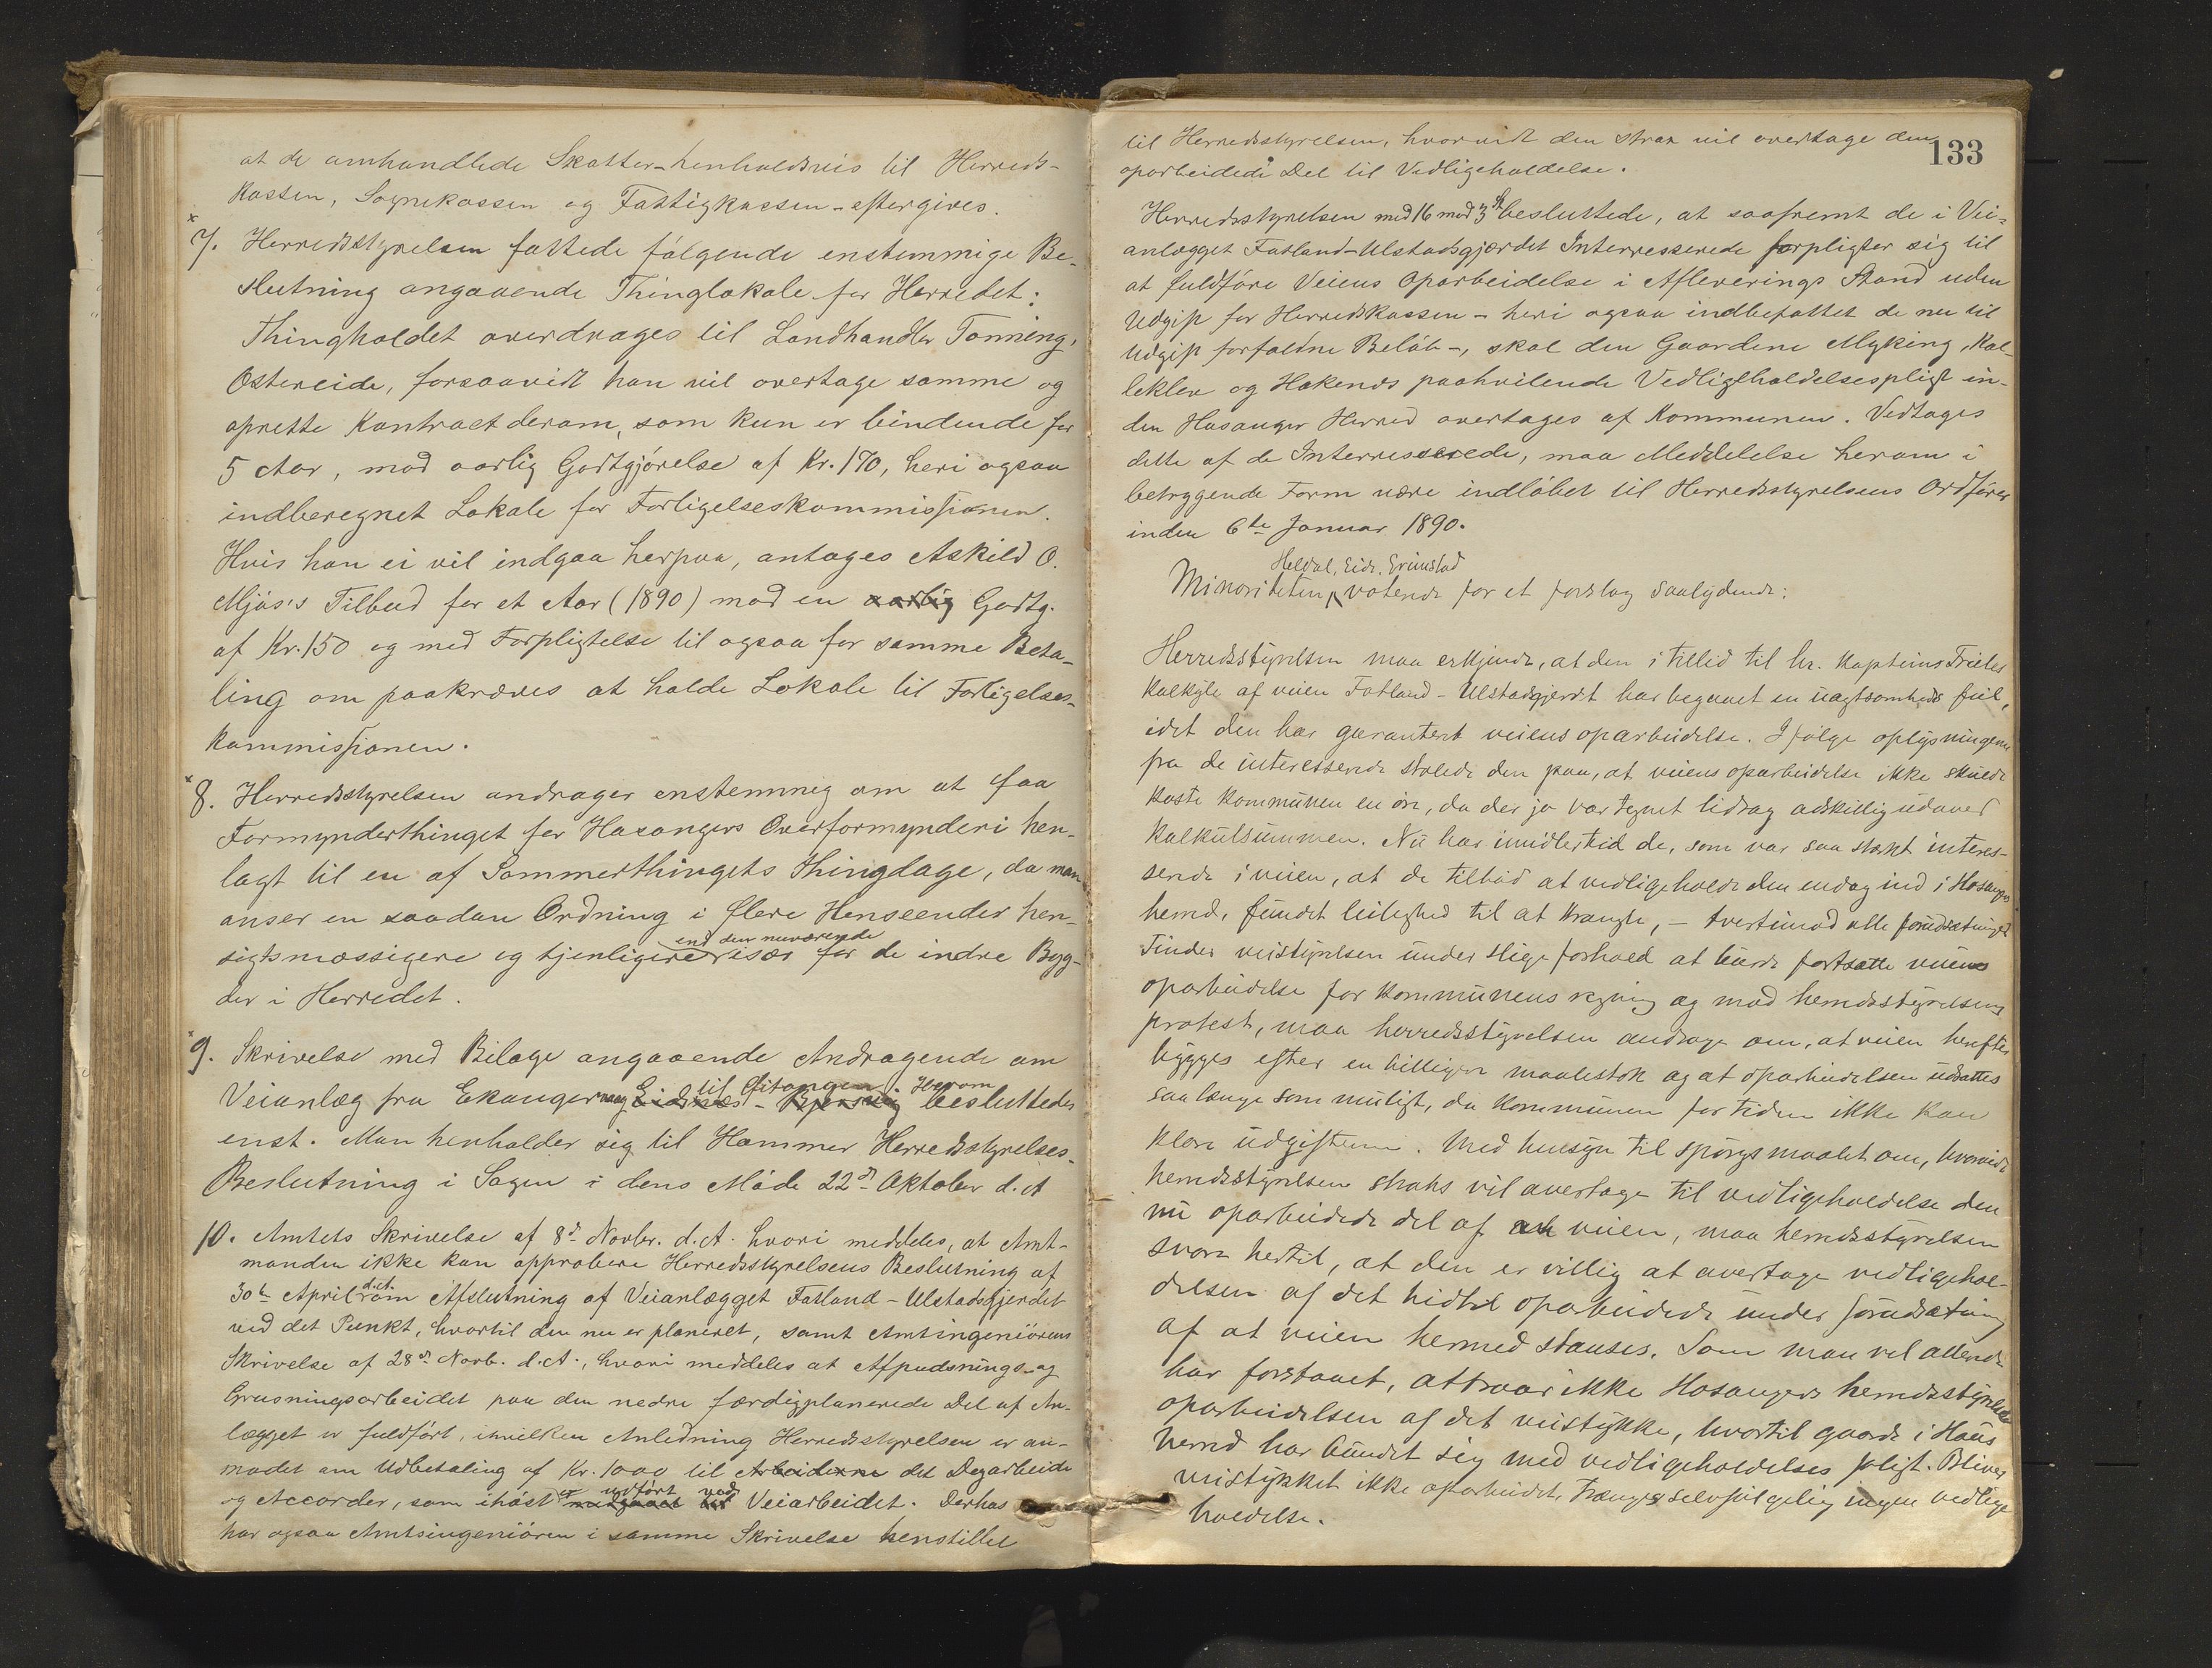 at de omhandlede Skatter - henholdsvis til Herreds-
kassen, Sognekassen og Fattigkassen - eftergives.
7. Herredsstyrelsen fattede følgende enstemmige Be-
slutning angaaende Thinglokale for Herredet:
Thingholdet overdrages til Landhandler Tonning,
Ostereide, forsaavidt han vil overtage samme og
oprette Kontract derom, som kun er bindende for
5 Aar, mod aarlig Godtgjörelse af Kr. 170, heri ogsaa
indberegnet Lokale for Forligelseskommissionen.
Hvis han ei vil indgaa herpaa, antages Askild O.
Mjøs's Tilbud for et Aar (1890) mod en aarlig Godtg.
af Kr. 150 og med Forpligtelse til ogsaa for samme Beta-
ling om paakræves at holde Lokale til Forligelses-
kommissionen.
8. Herredsstyrelsen andrager enstemmig om at faa
Formynderthinget for Hosangers Overformynderi hen-
lagt til en af Sommerthingets Thingdage, da man
anser en saadan Ordning i flere Henseender hen-
sigtsmæssigere og tjenligere end den nuværende især for de indre Byg-
der i Herredet.
9. Skrivelse med Bilage angaaende Andragende om
Veianlæg fra Ekangervaag til Eidsnes - Herom besluttedes
enst. Man henholder sig til Hammer Herredsstyrelses-
Beslutning i Sagen i dens Møde 22d Oktober d. A
10. Amtets Skrivelse af 8d Novbr. d. A. hvori meddeles, at Amt-
manden ikke kan approbere Herredsstyrelsens Beslutning af
30te April d.A. om Afslutning af Veianlægget Fatland - Ulstadsgjerdet
ved det Punkt, hvortil den nu er planeret, samt Amtingeniörens
Skrivelse af 28d Novb. d. A., hvori meddeles at Afpudsnings- og
Grusningsarbeidet paa den nedre færdigplanerede Del af An-
lægget er fuldfört, i hvilken Anledning Herredsstyrelsen er an-
modet om Udbetaling af Kr. 1000 til Arbeiderne det Dagarbeide
og Accorder, som ihöst er udfört ved Veiarbeidet. Derhos
har ogsaa Amtsingeniören i samme Skrivelse henstillet
133
til Herredsstyrelsen, hvorvidt den strax vil overtage den
oparbeidede Del til Vedligeholdelse.
Herredsstyrelsen med 16 mod 3 St besluttede, at saafremt de i Vei-
anlægget Fatland-Ulstadsgjærdet Interresserede forpligter sig til
at fuldføre Veiens Oparbeidelse i Afleverings Stand uden
Udgift for Herredskassen - heri ogsaa indbefattet de nu til
Udgift forfaldne Beløb -, skal den Gaardene Myking, Kal-
leklev og Hakenes paahvilende Vedligeholdelsespligt in-
den Hosanger Herred overtages af Kommunen. Vedtages
dette af de Interresserede, maa Meddelelse herom i
betryggende Form være indløbet til Herredsstyrelsens Ordfører
inden 6te Januar 1890.
Minoriteten Heldal, Eide, Grimstad voterede for et forslag saalydende:
Herredsstyrelsen maa erkjende, at den i tillid til hr. Kapteins Trieles
kalkyle af veien Fatland - Ulstadsgjerdet har begaaet en uagtsomheds feil,
idet den har garanteret veiens oparbeidelse. Ifølge oplysningerne
fra de interesserede stolede den paa, at veiens oparbeidelse ikke skulde
koste kommunen en øre, da der jo var tegnet bidrag adskillig udover
kalkulsummen. Nu har imidlertid de, som var saa stærkt interes-
serede i veien, at de tilbød at vedligeholde den endog ind i Hosanger
herred, fundet leilighed til at krangle, - tvertimod alle forudsætninger
Finder veistyrelsen under slige forhold at burde fortsætte veiens
oparbeidelse for kommunens regning og mod herredsstyrelsens
protest, maa herredsstyrelsen andrage om, at veien herefter
bygges efter en billigere maalestok og at oparbeidelsen udsættes
saalænge som muligt, da kommunen for tiden ikke kan
klare udgifterne. Med hensyn til spørgsmaalet om, hvorvidt
herredsstyrelsen straks vil overtage til vedligeholdelse den
nu oparbeidede del af veien, maa herredsstyrelsen
svare hertil, at den er villig at overtage vedligehol-
delsen af det hidtil oparbeidede under forudsætning
af at veien hermed stanses. Som man vel allerede
har forstaaet, attraar ikke Hosangers herredsstyrelse
oparbeidelsen af det veistykke, hvortil gaarde i Haus
herred har bundet sig med vedligeholdelses pligt. Bliver
veistykket ikke oparbeidet, trænges selvfølgelig ingen vedlige
holdelse.